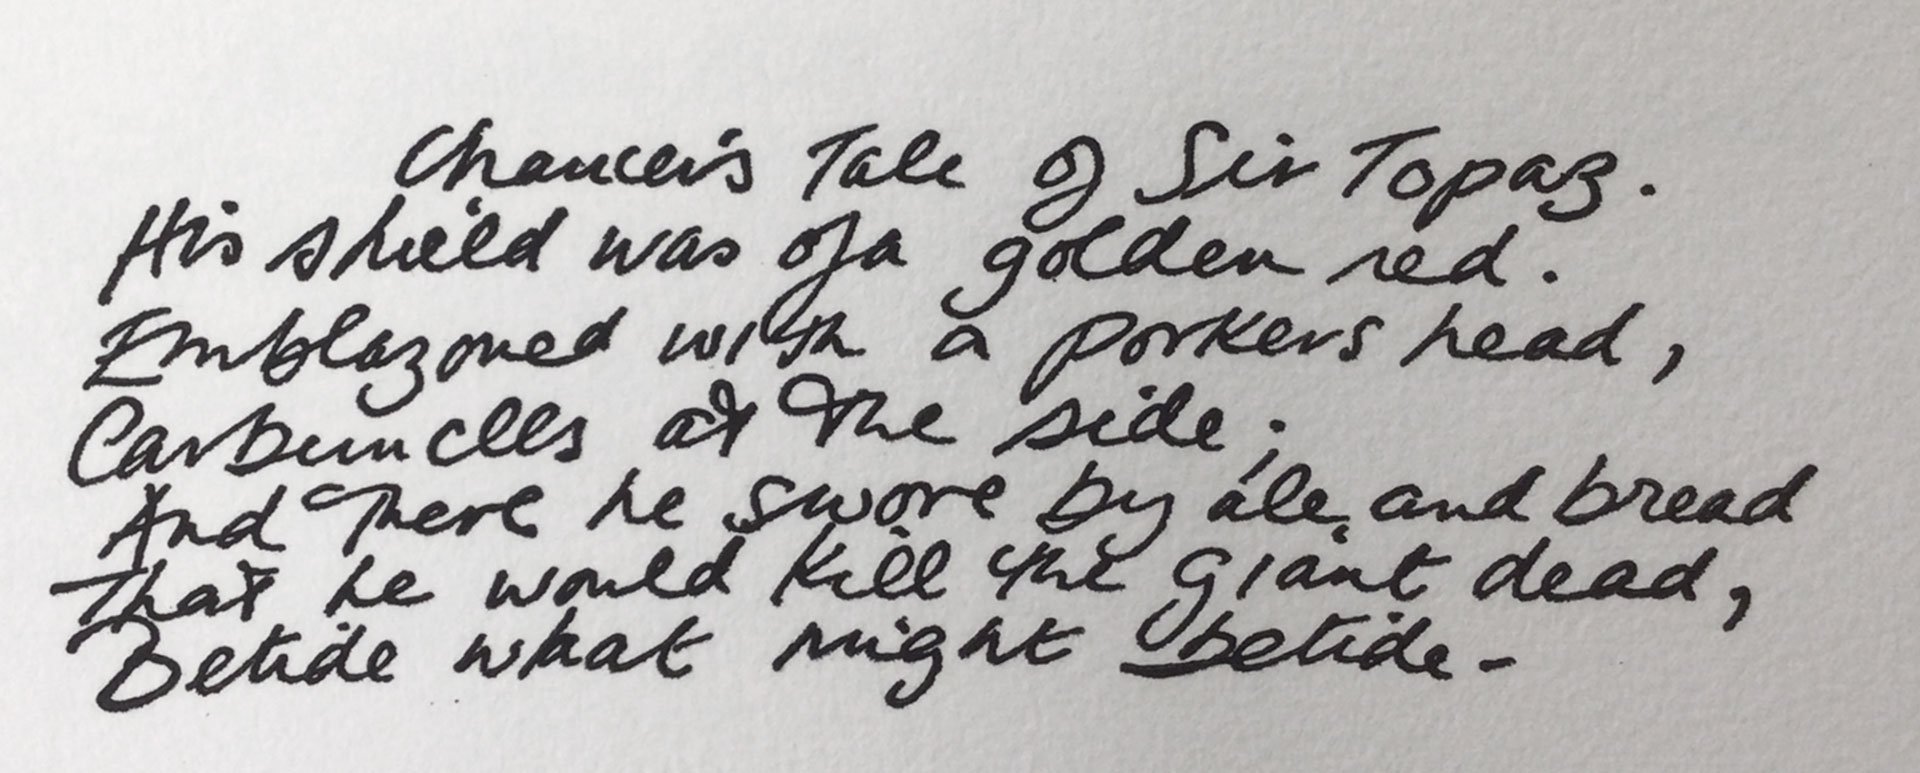 Chaucer's Tale of Sir Topaz.
His shield was of a golden red.
Emblazoned with a porkers head,
Carbuncles at the side;
And there he swore by ale and bread
That he would kill the giant dead,
Betide what might betide-